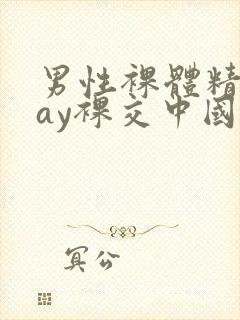 男性裸體精
ay裸交中國
冥公